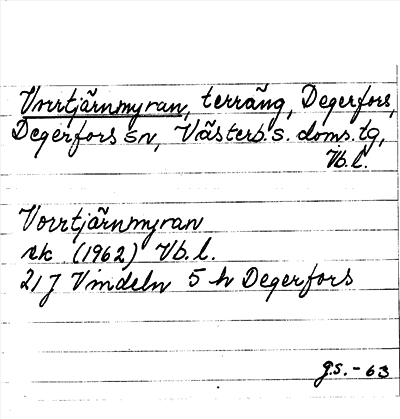 Vorrtjärnmyran, terräng, Degerfors,
Degerfors sn, Västerb:s. doms. tg,
Vb.l.
Vorrtjärnmyran
rk (1962) Vb.l.
21 J Vindeln 5 h Degerfors
g.s. - 63